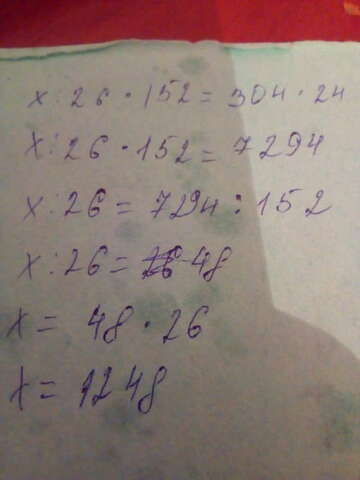 x : 26 · 152 = 304 · 24
x : 26 · 152 = 7294
x : 26 = 7294 : 152
x : 26 = 48
x = 48 · 26
x = 1248